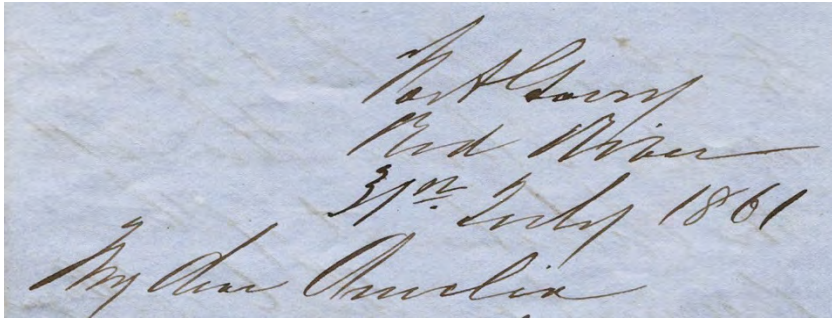 Fort Garry
Red River
31st July 1861
My dear Amelia